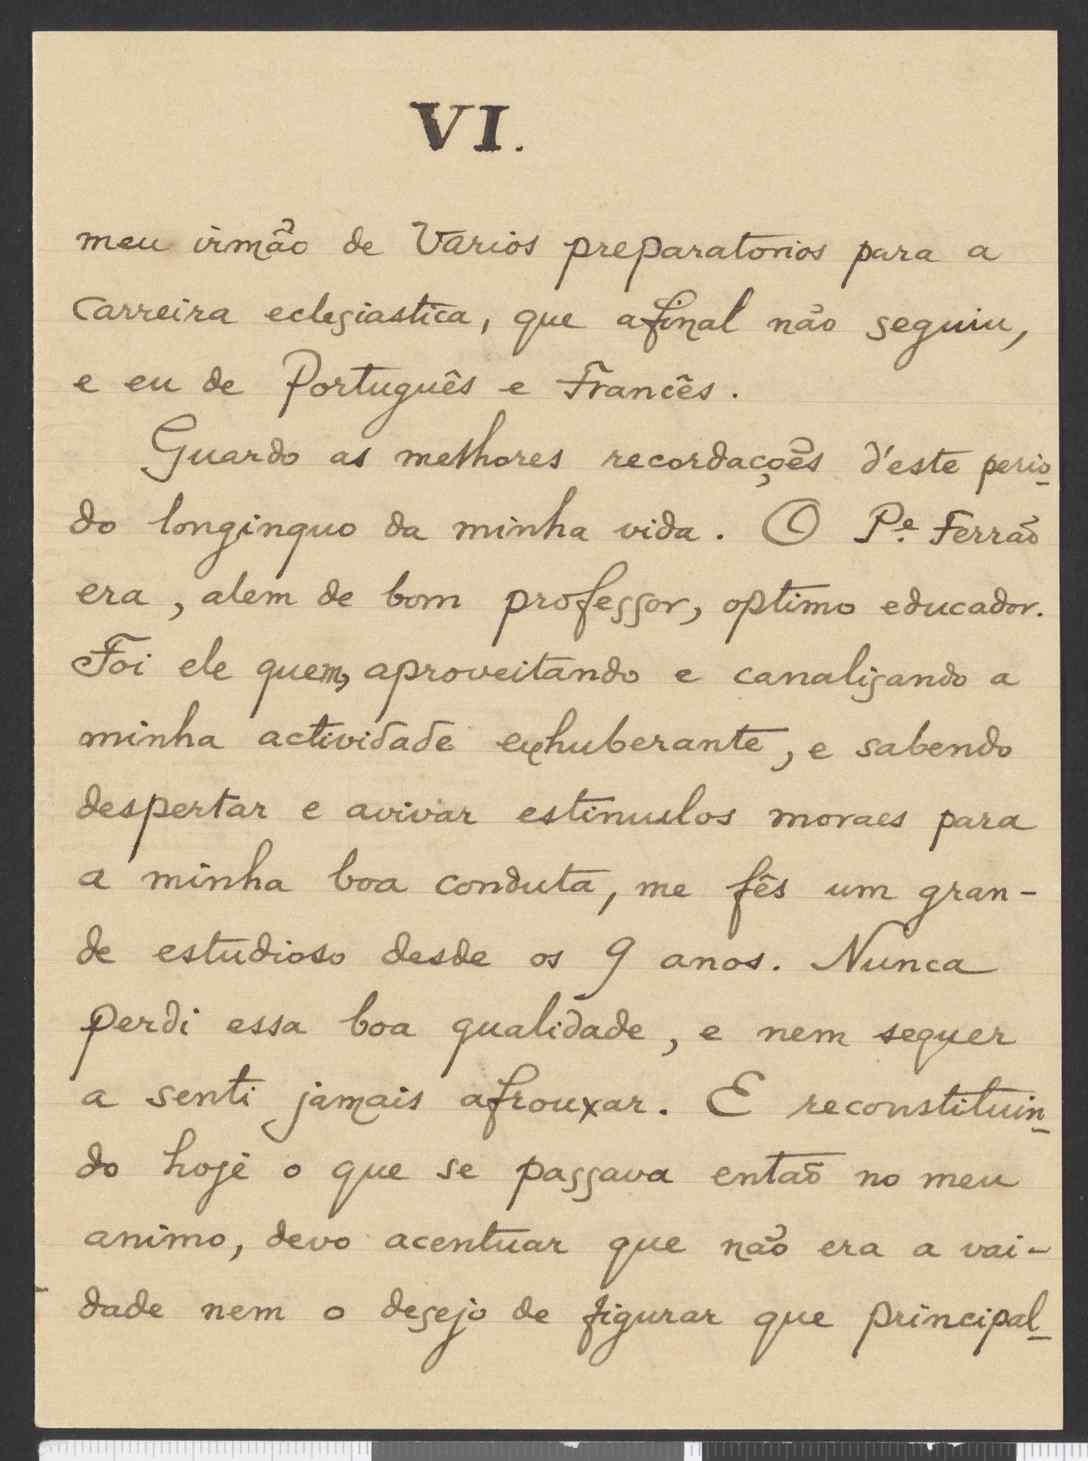 VI.
meu irmão de varios preparatorios para a
carreira eclesiastica, que afinal não seguiu,
e eu de Português e Francês.
Guardo as melhores recordações d'este perio-
do longinquo da minha vida. O P.e Ferrão
era, alem de bom professor, optimo educador.
Foi ele quem, aproveitando e canalisando a
minha actividade exhuberante, e sabendo
despertar e avivar estimulos moraes para
a minha boa conduta, me fês um gran-
de estudioso desde os 9 anos. Nunca
perdi essa boa qualidade, e nem sequer
a senti jamais afrouxar. E reconstituin-
do hoje o que se passava então no meu
animo, devo acentuar que não era a vai-
dade nem o desejo de figurar que principal-